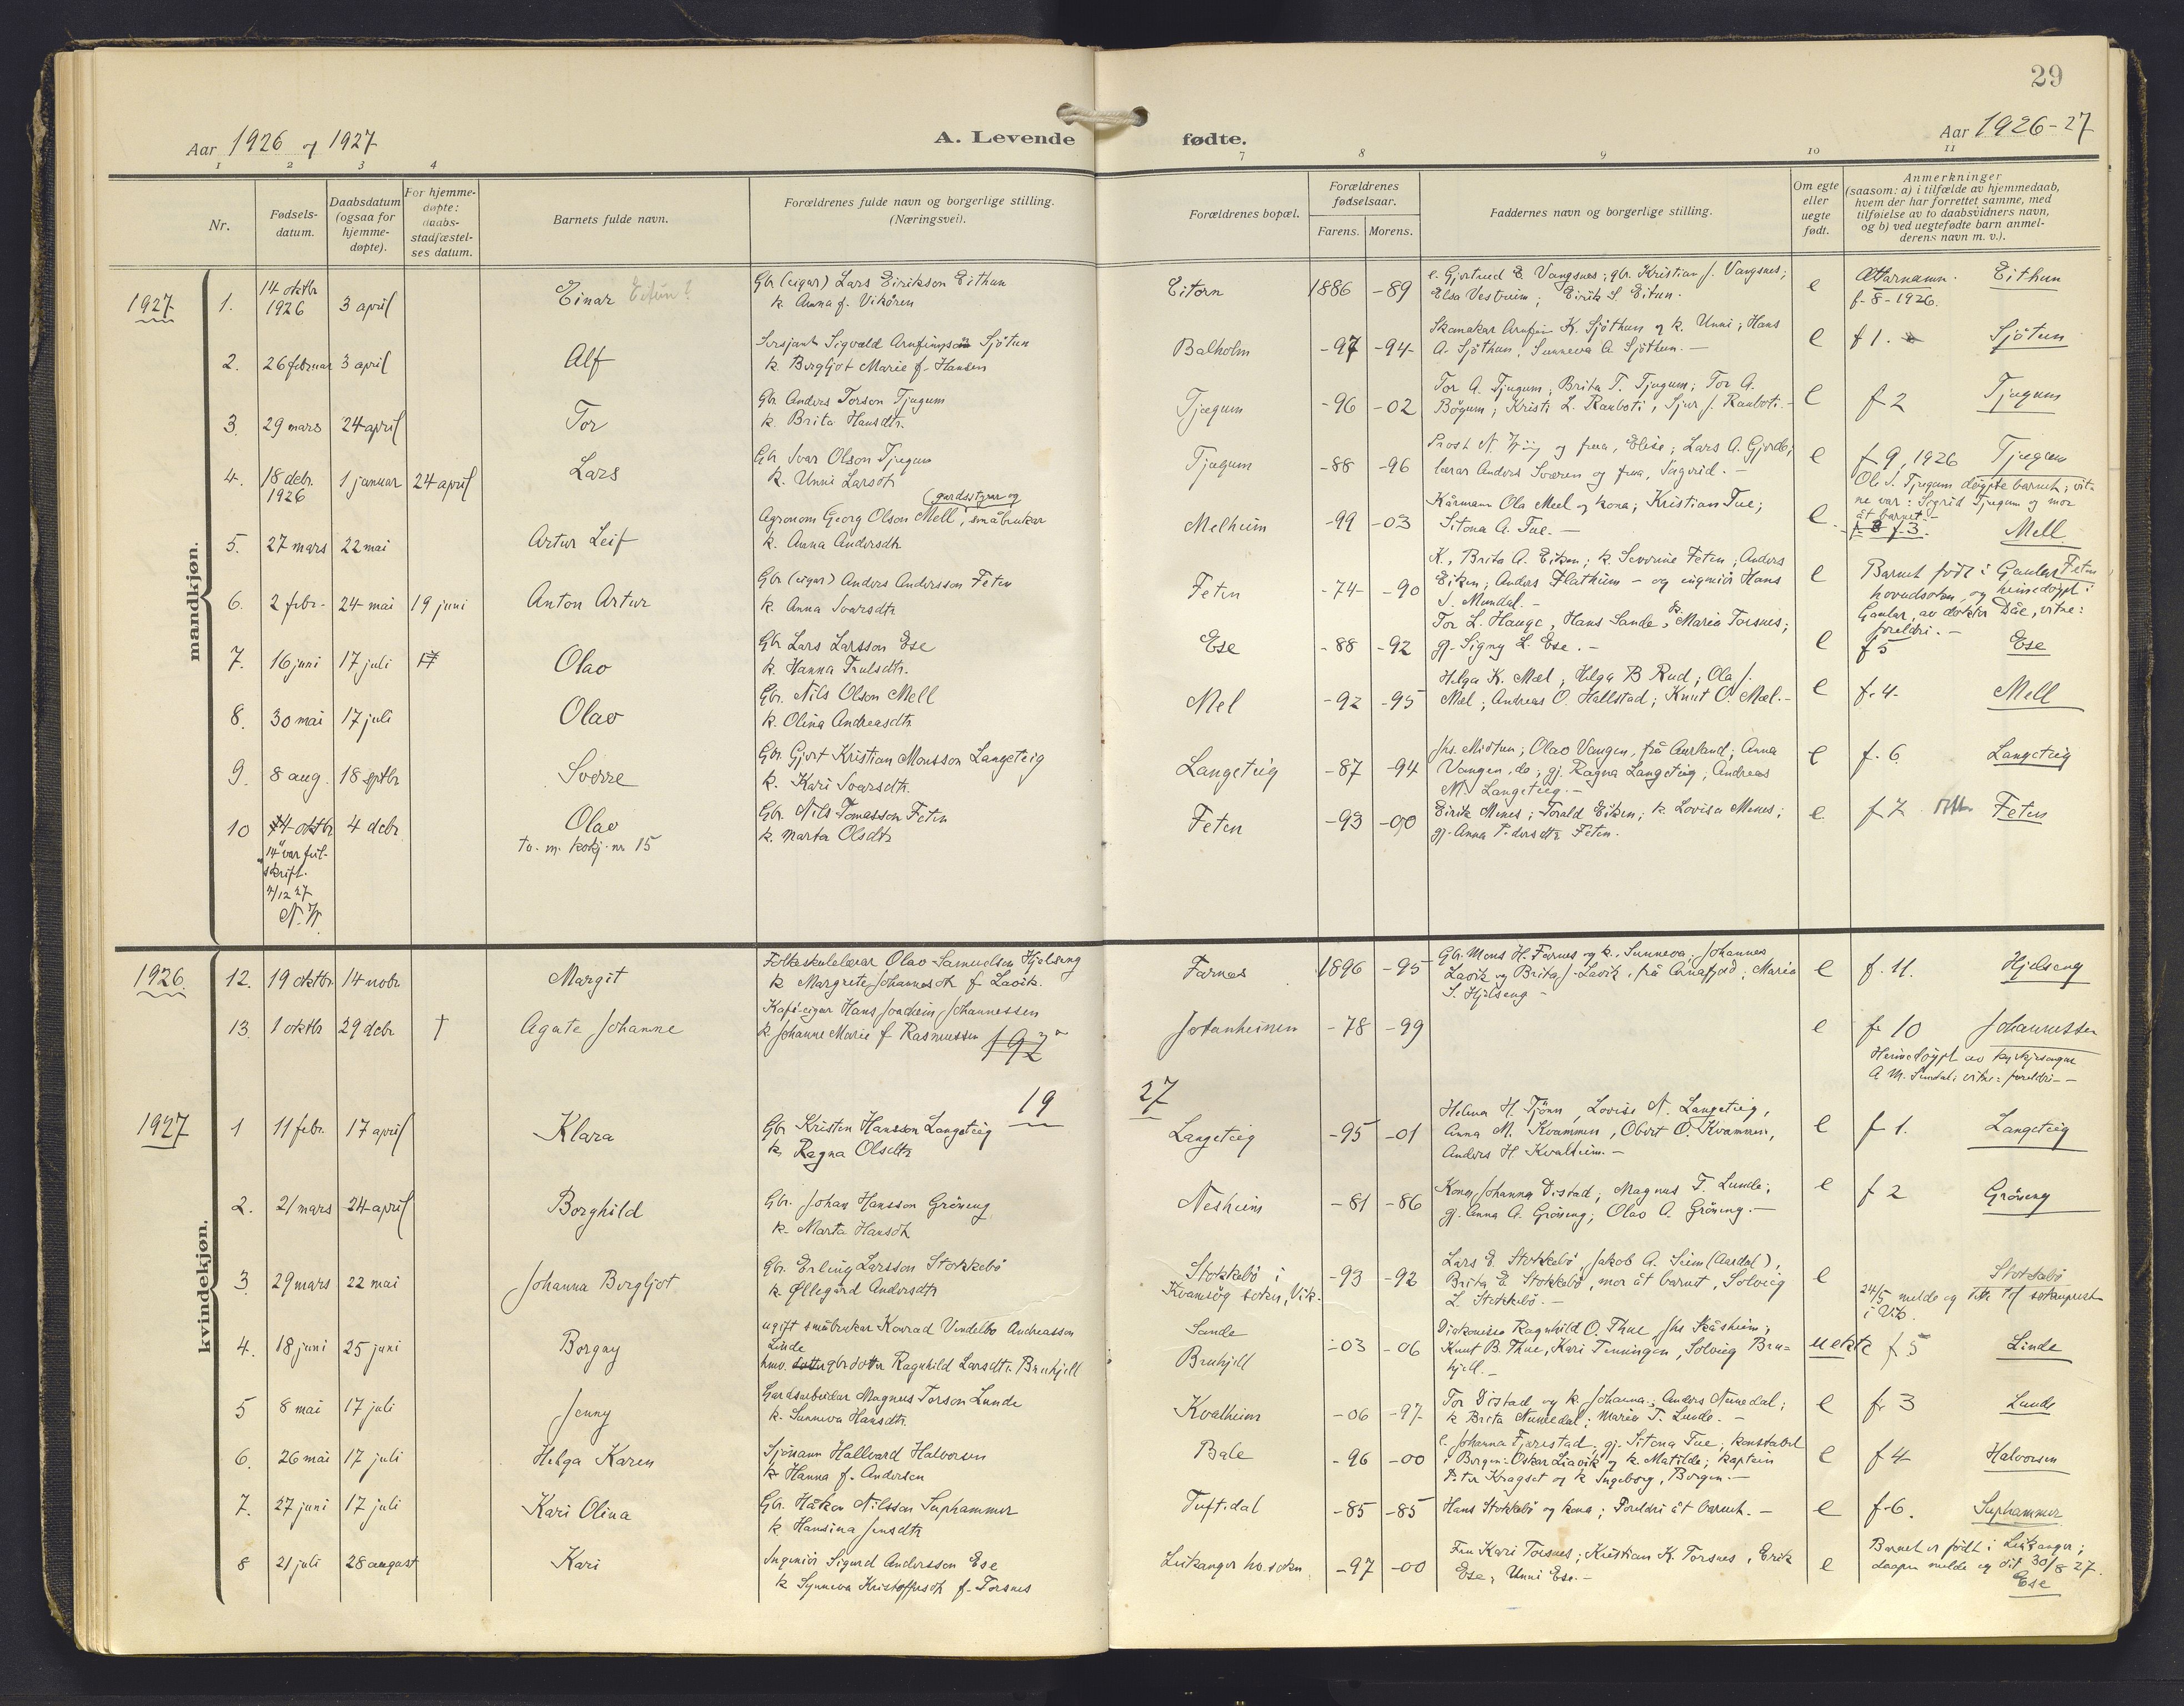 29
Aar 1926 og 1927
A. Levende fødte.
Aar 1926-27
1 2 3 4 7 8 9 10 11
Nr.
Fødsels-datum.
Daabsdatum (ogsaa for hjemme-døpte).
For hjemme-døpte: daabs-stadfæstel-ses datum.
Barnets fulde navn.
Forældrenes fulde navn og borgerlige stilling. (Næringsvei).
Forældrenes bopæl.
Forældrenes fødselsaar.
Farens. Morens.
Faddernes navn og borgerlige stilling.
Om egte eller uegte født.
Anmerkninger
(saasom: a) i tilfælde av hjemmedaab,
hvem der har forrettet samme, med
tilføielse av to daabsvidners navn,
og b) ved uegtefødte barn anmel-
derens navn m. v.).
mandkjøn.
1927
1. 14 oktbr 1926 3 april Einar Eitun?
Gbr (eigar) Lars Eirikson Eithun
k. Anna f. Vikören
Eitorn 1886 -89
e. Gjertrud E. Vangsnes; gbr. Kristian J. Vangsnes;
Elsa Vestreim; Eirik S. Eitun.
e Ættarnamn. Eithun
f. 8 - 1926.
2. 26 februar 3 april Alf
Sersjant Sigvald Arnfinnson Sjötun
k. Bergljot Marie f. Hansen
Balholm -97 -94-
Skomakar Arnfinn K. Sjöthun og k. Unni; Hans
A. Sjöthun; Sunneva A. Sjöthun. -
e f 1. Sjötun
3. 29 mars 24 april Tor
Gbr Anders Torson Tjugum
k. Brita Hansdtr.
Tjugum -96 -02
Tor A. Tjugum; Brita T. Tjugum; Tor A.
Böyum; Kristi L. Rauboti, Sjur J. Rauboti. -
e f 2 Tjugum
4. 18 debr. 1926 1 januar 24 april Lars
Gbr Ivar Olson Tjugum
k. Unni Larsdtr
Tjugum -88 -96
Prost N. Wiig og frua, Elise; Lars A. Gjerde;
lærar Anders Sværen og frua, Ingerid. -
e f 9, 1926 Tjugum
Ole I. Tjugum döypte barnet; vit-
ne var: Sigrid Tjugum og mor
åt barnet. -
5. 27 mars 22 mai Artur Leif
(gardsstyrar og
Agronom Georg Olson Mell, småbrukar
k. Anna Andersdtr
Melheim -99 -03
Kårmann Ola Meel og kona; Kristian Tue;
Sitona A. Tue. -
e. f. 3. Mell
6. 2 febr. 24 mai 19 juni Anton Artur
Gbr (eigar) Anders Andersson Feten
k. Anna Ivarsdtr
Feten -74- -90
K., Brita A. Eiken; k. Severine Feten; Anders
Eiken; Anders Flatheim - og ingeniör Hans
S. Mundal. -
e Barnet födt i Gaular Feten
hovudsokn og heimedöypt i
Gaular, av doktor Dåe, vitne:
foreldri. -
7. 16 juni 17 juli Olav
Gbr Lars Larsson Ese
k. Hanna Trulsdtr.
Ese -88 -92
Tor L. Hauge, Hans Sande, k. Maria Torsnes;
gj. Signy L. Ese. -
e f 5 Ese
8. 30 mai 17 juli Olav
Gbr. Nils Olson Mell
k. Olina Andreasdtr
Mel -92 -95
Helga K. Mæl; Helga B Rud; Ola J.
Mæl; Andreas O. Hallstad; Knut O. Mæl. -
e f. 4- Mell
9. 8 aug. 18 septbr Sverre
Gbr. Gjert Kristian Monsson Langeteig
k. Kari Ivarsdtr.
Langeteig -87 -94
Jhs. Midtun; Olav Vangen, frå Aurland; Anna
Vangen, do; gj. Ragna Langeteig; Andreas
M. Langeteig. -
e f. 6 Langeteig
10 4 oktbr 4 debr Olav
Tv. m. kvkj. nr 15
Gbr. Nils Tomasson Feten
k. Marta Olsdtr
Feten -93 -00
Eirik Menes; Torald Eiken; k. Lovisa Menes;
gj. Anna P. dersdtr Feten.
e. f 7 Feten
"14" var feil-
skrift.
4/12 27
N. W.
kvindekjøn.
1926
12. 19 oktbr 14 nobr Margit
Folkeskulelærar Olav Samuelsen Hjelseng
k Margrete Johannesdtr f Lavik.
Farnes 1896 -95
Gbr. Mons H. Farnes og k. Sunneva; Johannes
Lavik og Brita J. Lavik, frå Arnafjord; Maria
S. Hjelseng -
e f. 11. Hjelseng
13. 1 oktbr 29 debr † Agate Johanne
Kafé-eigar Hans Joachim Johannessen
k. Johanne Marie f Rasmussen
Jotunheimen -78 -99
e fr 10 Johannessen
A. M. Sundal; vitne: foreldri -
19 27
1927
1 11 febr. 17 april Klara
Gbr Kristen Hansson Langeteig
k. Ragna Olsdtr
Langeteig -95 -01
Helena H. Tjönn, Lovise N. Langeteig,
Anna M. Kvammen, Obert O. Kvammen,
Anders H. Kvalheim. -
e f 1. Langeteig
2. 21 mars 24 april Borghild
Gbr. Johan Hansson Gröneng
k. Marta Hansdtr
Nesheim -81 -86
Kona Johanna Distad; Magnus T. Lunde;
gj. Anna A. Gröneng; Olav A. Gröneng. -
e f 2 Gröneng
3 29 mars 22 mai Johanna Bergljot
Gbr. Erling Larsson Stokkebö
k. Øllegård Andersdtr
Stokkebö i
Kvamsöy sokn, Vik. -93 -92
Lars E. Stokkebö, Jakob A. Seim (Aardal),
Brita E. Stokkebö, mor åt barnet, Solveig
L. Stokkebö. -
e Stokkebö
24/5 melde eg dette til sokneprest
i Vik.
4. 18 juni 25 juni Borgny
ugift småbrukar Konrad Vendelbo Andreasson
Linde
hmv. gbrdotter Ragnhild Larsdtr. Bruhjell
Sande
Bruhjell -03 -06
Diakonisse Ragnhild O. Thue, Jhs Skåsheim;
Knut B. Thue, Kari Tenningen, Solveig Bru-
hjell. -
uekte f 5 Linde
5 8 mai 17 juli Jenny
Gardsarbeidar Magnus Torson Lunde
k. Sunneva Hansdtr.
Kvalheim -06 -97
Tor Distad og k. Johanna; Anders Numedal;
k Brita Numedal; Maria T. Lunde. -
e fr 3 Lunde
6. 26 mai 17 juli Helga Karen
Sjömann Hallvard Halvorsen
k Hanna f. Andersen
Bale -96 -00
e. Johanna Fjærestad; gj. Sitona Tue; konstabel
i Bergen: Oskar Liavik og k. Matilde; kaptein
Peter Kragset og k Ingeborg, Bergen. -
e f 4 Halvorsen
7. 27 juni 17 juli Kari Olina
Gbr. Håkon Nilsson Suphammer
k Hansina Jensdtr
Tuftedal -85 -85
Hans Stokkebö og kona; Foreldri åt barnet. -
e f. 6. Suphammer
8 21 juli 28 august Kari
Ingeniör Sigurd Andersson Ese
k Synneva Kristoffersdtr f. Torsnes
Leikanger ho. sokn. -97 -00
Fru Kari Torsnes; Kristian K. Torsnes, Erik
Ese, Unni Ese. -
e Barnet er födt i Leikanger;
daapen melde eg dit 30/8 27.
Ese